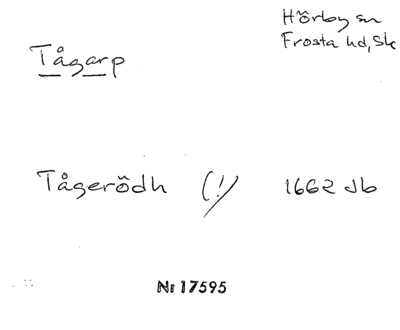 Hörby sn
Frosta hd, Sk
Tågarp
Tågerödh (!) 1662 Jb
Nr 17595